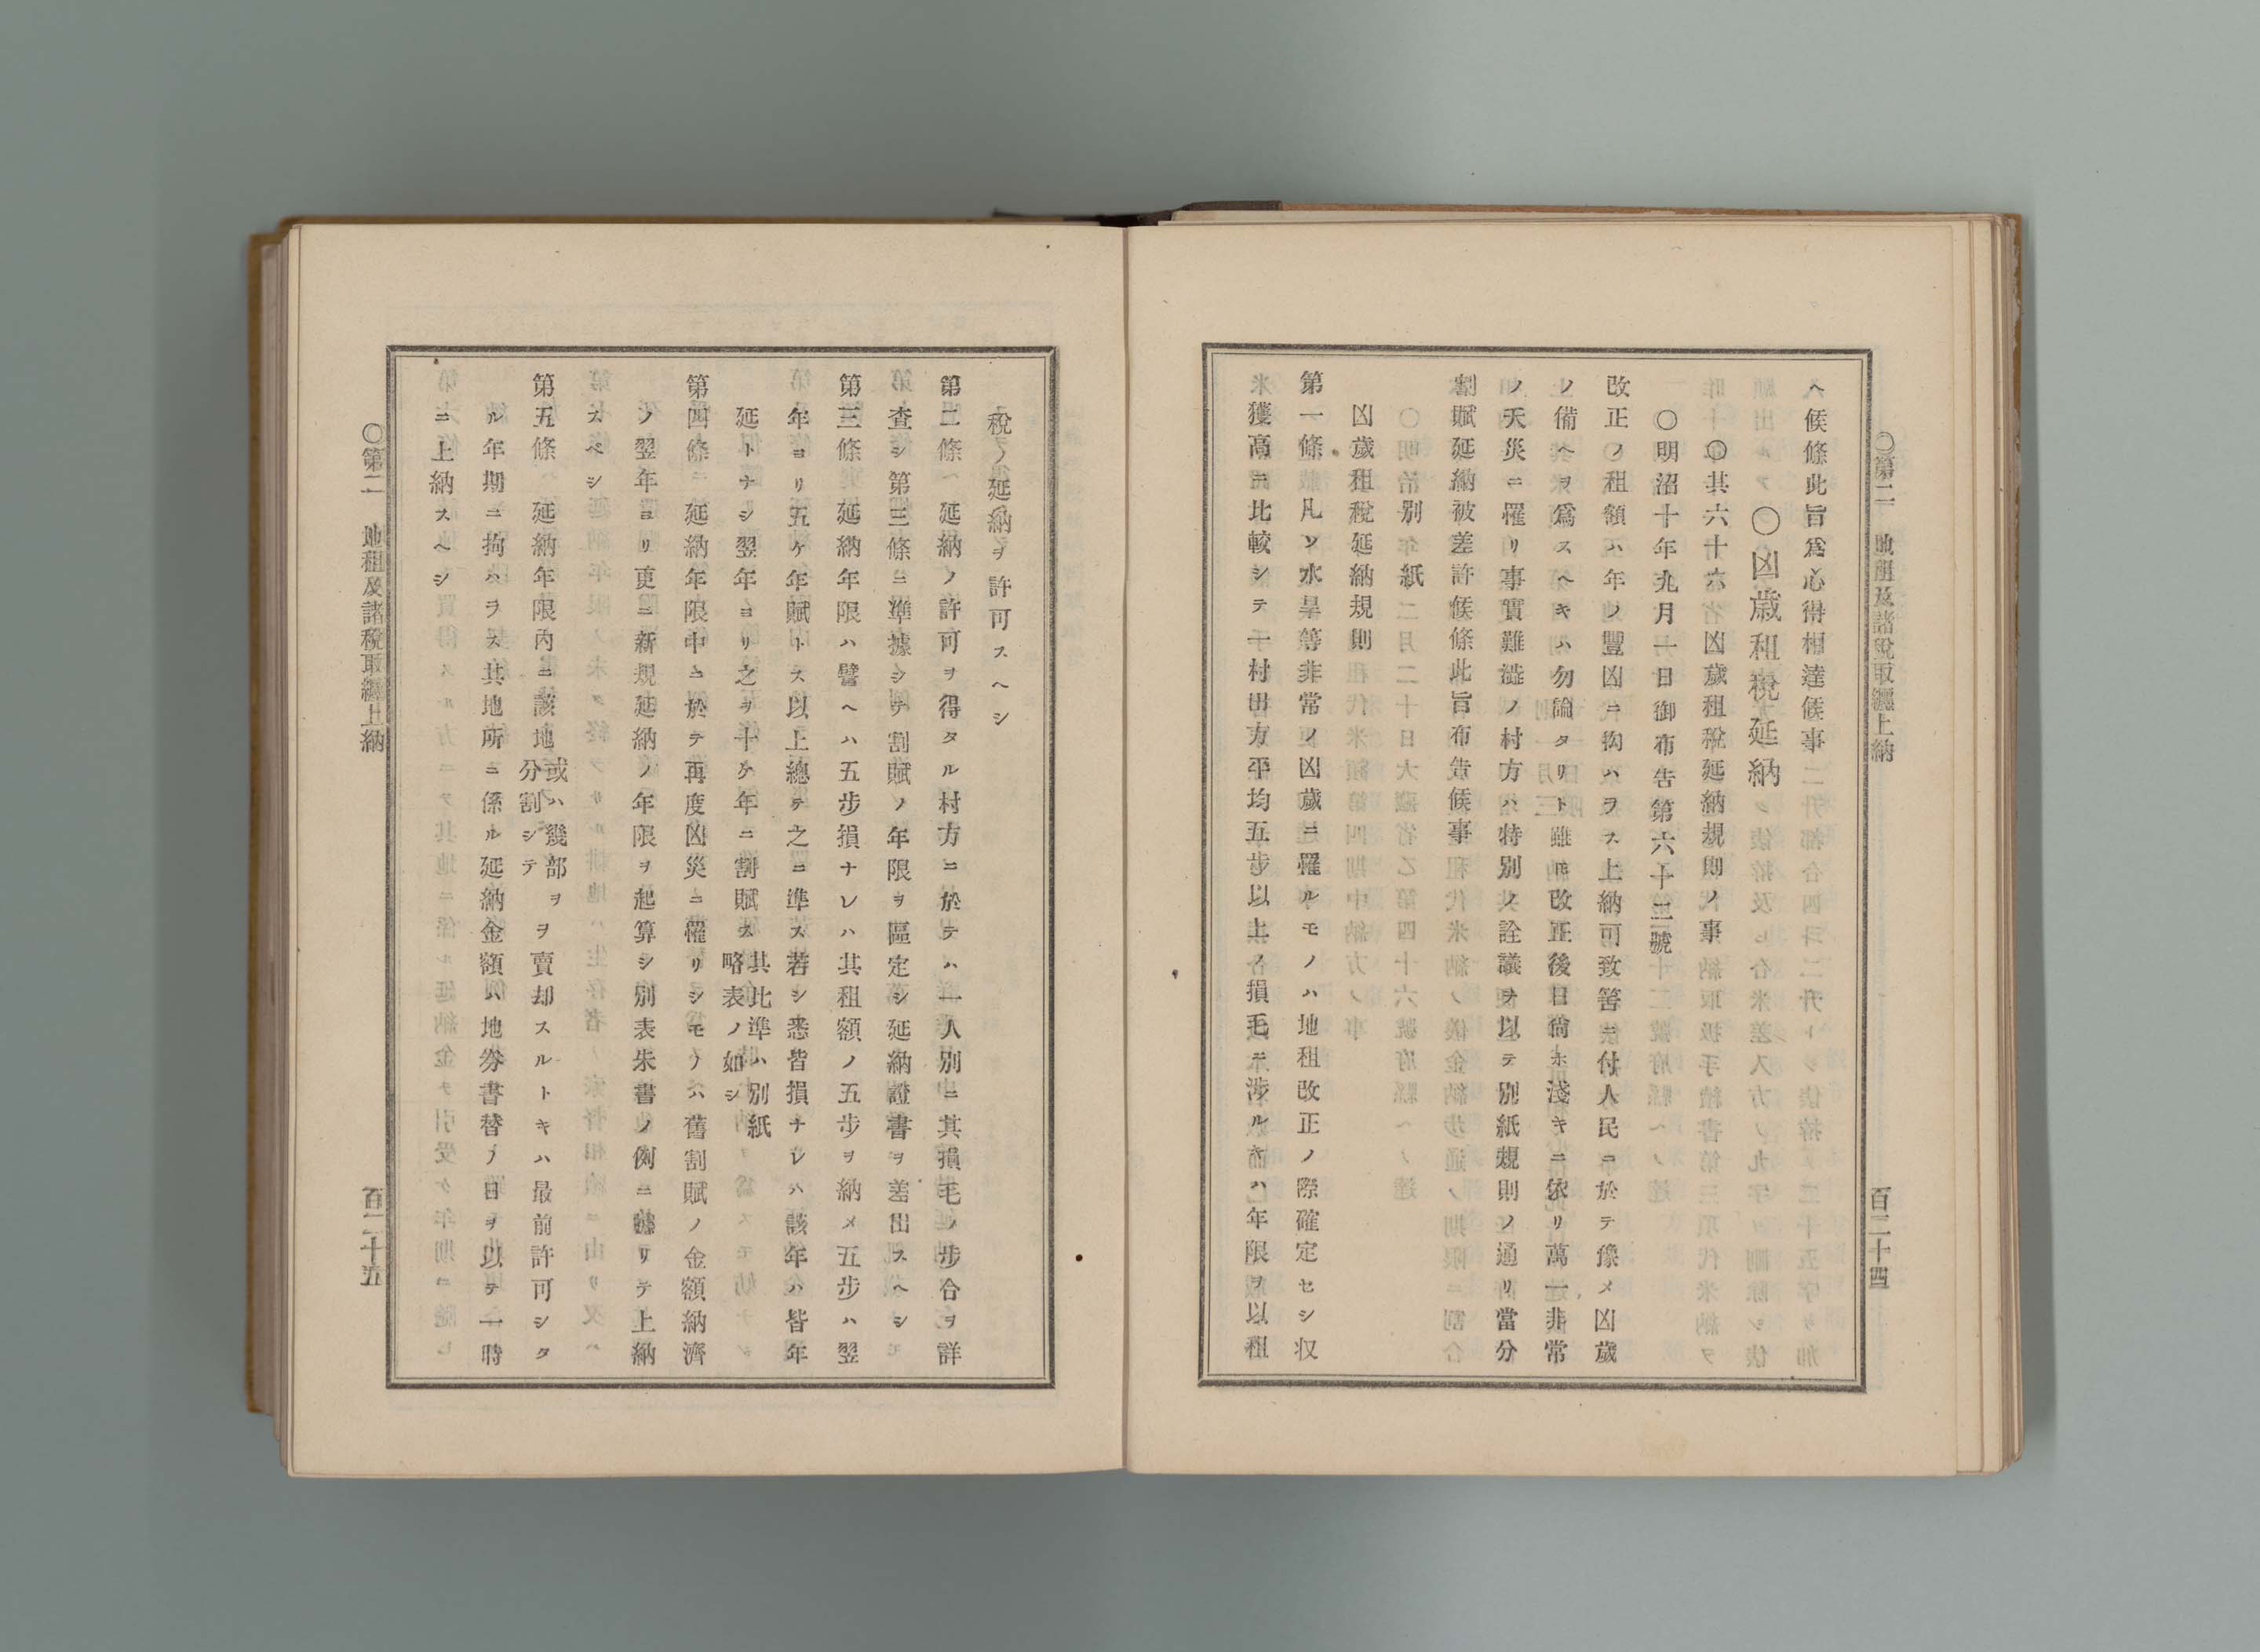 〇第二　地租及諸稅取纒上納
百二十四
ヘ候條此旨爲心得相達候事
〇凶歲租稅延納
〇其六十六　凶歲租稅延納規則ノ事
〇明治十年九月一日御布告第六十二號
改正ノ租額ハ年ノ豐凶ニ拘ハラス上納可致筈ニ付人民ニ於テ豫メ凶歲
ノ備ヘヲ爲スヘキハ勿論タリト雖𪜈改正後日尙ホ淺キニ依リ萬一非常
ノ天災ニ罹リ事實難澁ノ村方ハ特別ノ詮議ヲ以テ別紙規則ノ通リ當分
割賦延納被差許候條此旨布告候事
別紙
凶歲租稅延納規則
第一條　凡ソ水旱等非常ノ凶歲ニ罹ルモノハ地租改正ノ際確定セシ収
米獲高ニ比較シテ一村田方平均五步以上ノ損毛ニ涉ル者ハ年限ヲ以租
稅ノ延納ヲ許可スヘシ
第二條　延納ノ許可ヲ得タル村方ニ於テハ一人別ニ其損毛ノ步合ヲ詳
查シ第三條ニ準據シテ割賦ノ年限ヲ區定シ延納證書ヲ差出スヘシ
第三條　延納年限ハ譬ヘハ五步損ナレハ其租額ノ五步ヲ納メ五步ハ翌
年ヨリ五ケ年賦トス以上總テ之ニ準ス若シ悉皆損ナレハ該年ハ皆年
延トナシ翌年ヨリ之ヲ十ケ年ニ割賦ス其比準ハ別紙略表ノ如シ
第四條　延納年限中ニ於テ再度凶災ニ罹リシモノハ舊割賦ノ金額納濟
ノ翌年ヨリ更ニ新規延納ノ年限ヲ起算シ別表朱書ノ例ニ據リテ上納
スベシ
第五條　延納年限內ニ該地或ハ幾部ヲ分割シテヲ賣却スルトキハ最前許可シタ
ル年期ニ拘ハラス其地所ニ係ル延納金額ハ地券書替ノ日ヲ以テ一時
ニ上納スヘシ
〇第二　地租及諸稅取纒上納
百二十五